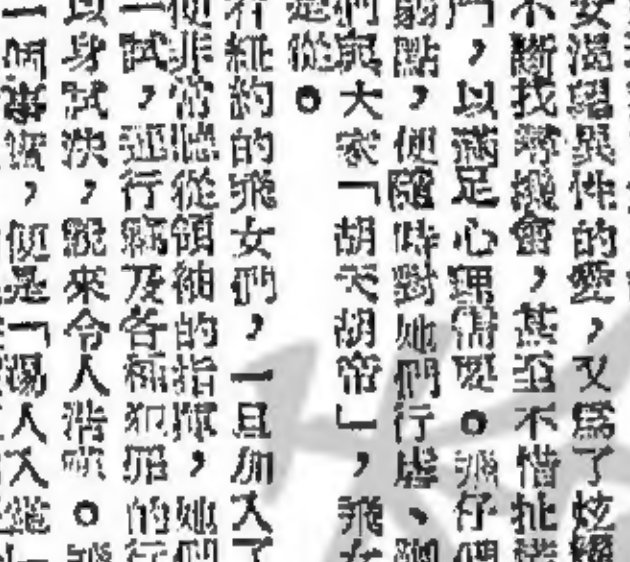 女渴望異性的愛，又爲了炫耀
不斷找尋機會，甚至不惜扯
，以滿足心理需要。飛仔們
弱點，便隨時對她們行虐、
們與大家「胡天胡帝」，飛女
是從。
的飛女們，一旦加入了
便非常聽從領袖的指揮，她們
一試，行竊及各種犯罪的行
以身試法，說來令人浩嘆。
一個，便是「人入